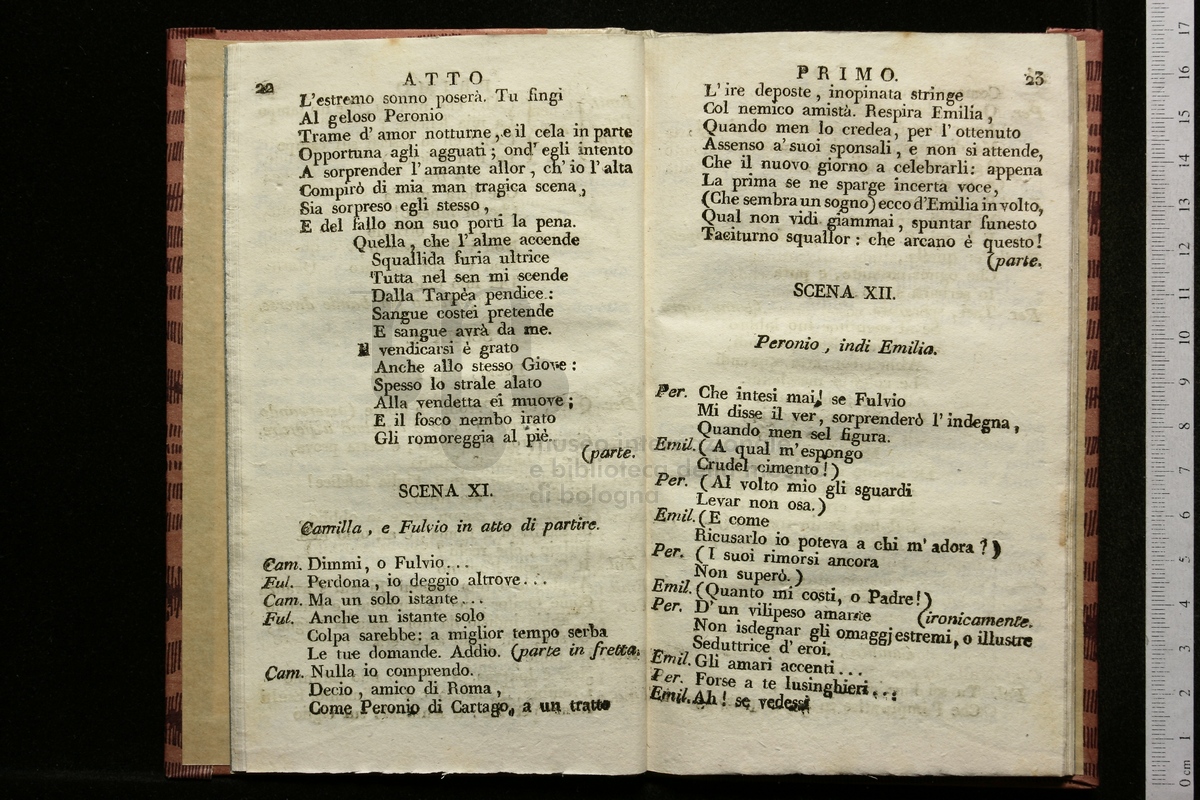 22
ATTO
L'estremo sonno poserà. Tu fingi
Al geloso Peronio
Trame d'amor notturne, e il cela in parte
Opportuna agli agguati; ond' egli intento
A sorprender l'amante allor, ch'io l'alta
Compirò di mia man tragica scena,
Sia sorpreso egli stesso,
E del fallo non suo porti la pena.
Quella, che l'alme accende
Squallida furia ultrice
Tutta nel sen mi scende
Dalla Tarpèa pendice:
Sangue costei pretende
E sangue avrà da me.
Il vendicarsi è grato
Anche allo stesso Giove:
Spesso lo strale alato
Alla vendetta ei muove;
E il fosco nembo irato
Gli romoreggia al piè.
(parte.
SCENA XI.
Camilla, e Fulvio in atto di partire.
Cam. Dimmi, o Fulvio...
Ful. Perdona, io deggio altrove...
Cam. Ma un solo istante...
Ful. Anche un istante solo
Colpa sarebbe: a miglior tempo serba
Le tue domande. Addio. (parte in fretta.
Cam. Nulla io comprendo.
Decio, amico di Roma,
Come Peronio di Cartago, a un tratto
PRIMO.
23
L'ire deposte, inopinata stringe
Col nemico amistà. Respira Emilia,
Quando men lo credea, per l'ottenuto
Assenso a' suoi sponsali, e non si attende,
Che il nuovo giorno a celebrarli: appena
La prima se ne sparge incerta voce,
(Che sembra un sogno) ecco d'Emilia in volto,
Qual non vidi giammai, spuntar funesto
Taciturno squallor: che arcano è questo!
(parte.
SCENA XII.
Peronio, indi Emilia.
Per. Che intesi mai! se Fulvio
Mi disse il ver, sorprenderò l'indegna,
Quando men sel figura.
Emil. (A qual m'espongo
Crudel cimento!)
Per. (Al volto mio gli sguardi
Levar non osa.)
Emil. (E come
Ricusarlo io poteva a chi m'adora?)
Per. (I suoi rimorsi ancora
Non superò.)
Emil. (Quanto mi costi, o Padre!)
Per. D'un vilipeso amante (ironicamente.
Non isdegnar gli omaggj estremi, o illustre
Seduttrice d'eroi.
Emil. Gli amari accenti...
Per. Forse a te lusinghieri...
Emil. Ah! se vedessi
museo internazionale
e biblioteca della musica
di bologna
0 cm 1 2 3 4 5 6 7 8 9 10 11 12 13 14 15 16 17